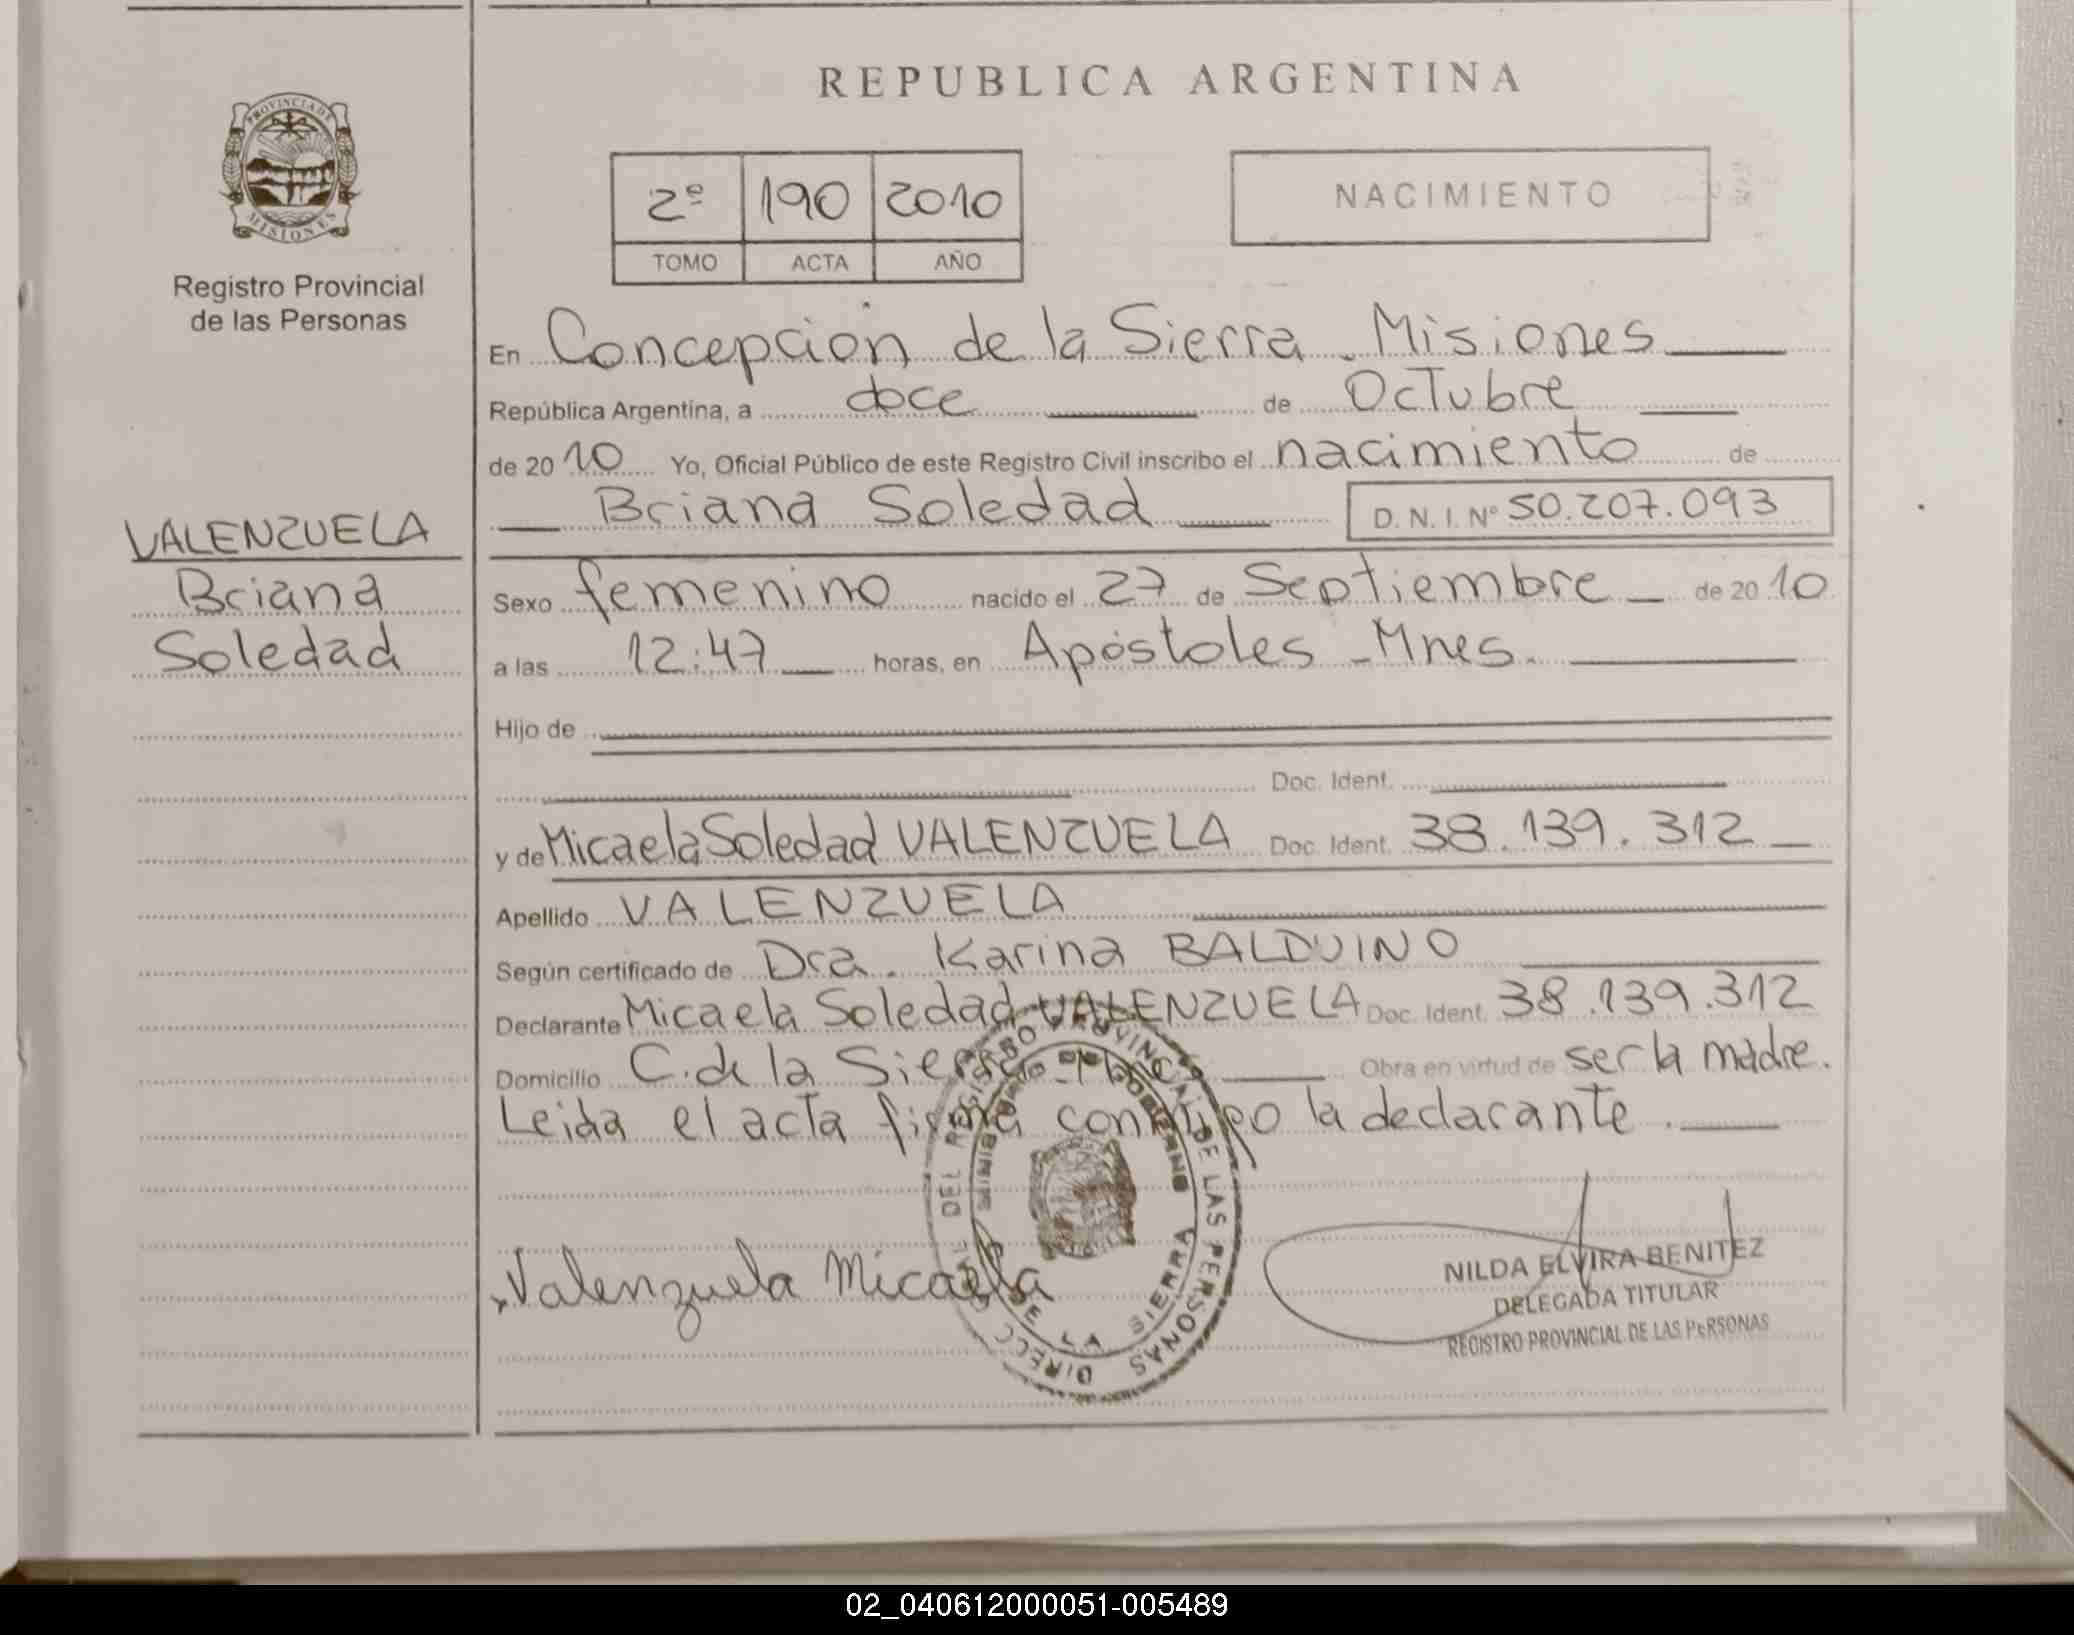 REPUBLICA ARGENTINA
PROVINCIA DE
MISIONES
Registro Provincial
de las Personas
2º 190 2010
TOMO ACTA AÑO
NACIMIENTO
En Concepción de la Sierra - Misiones
República Argentina, a doce de Octubre
de 2010 Yo, Oficial Público de este Registro Civil inscribo el nacimiento de
Briana Soledad D.N.I. Nº 50.207.093
VALENZUELA
Briana
Soledad
Sexo femenino nacido el 27 de Septiembre de 2010
a las 12:47 horas, en Apóstoles - Mnes.
Hijo de
Doc. Ident.
y de Micaela Soledad VALENZUELA Doc. Ident. 38.139.312
Apellido VALENZUELA
Según certificado de Dra. Karina BALDUINO
Declarante Micaela Soledad VALENZUELA Doc. Ident. 38.139.312
Domicilio C. de la Sierra - Mnes Obra en virtud de ser la madre.
Leida el acta firma conmigo la declarante.
Valenzuela Micaela
DEL REGISTRO PROVINCIAL DE LAS PERSONAS
DE LA SIERRA
NILDA ELVIRA BENITEZ
DELEGADA TITULAR
REGISTRO PROVINCIAL DE LAS PERSONAS
02_040612000051-005489